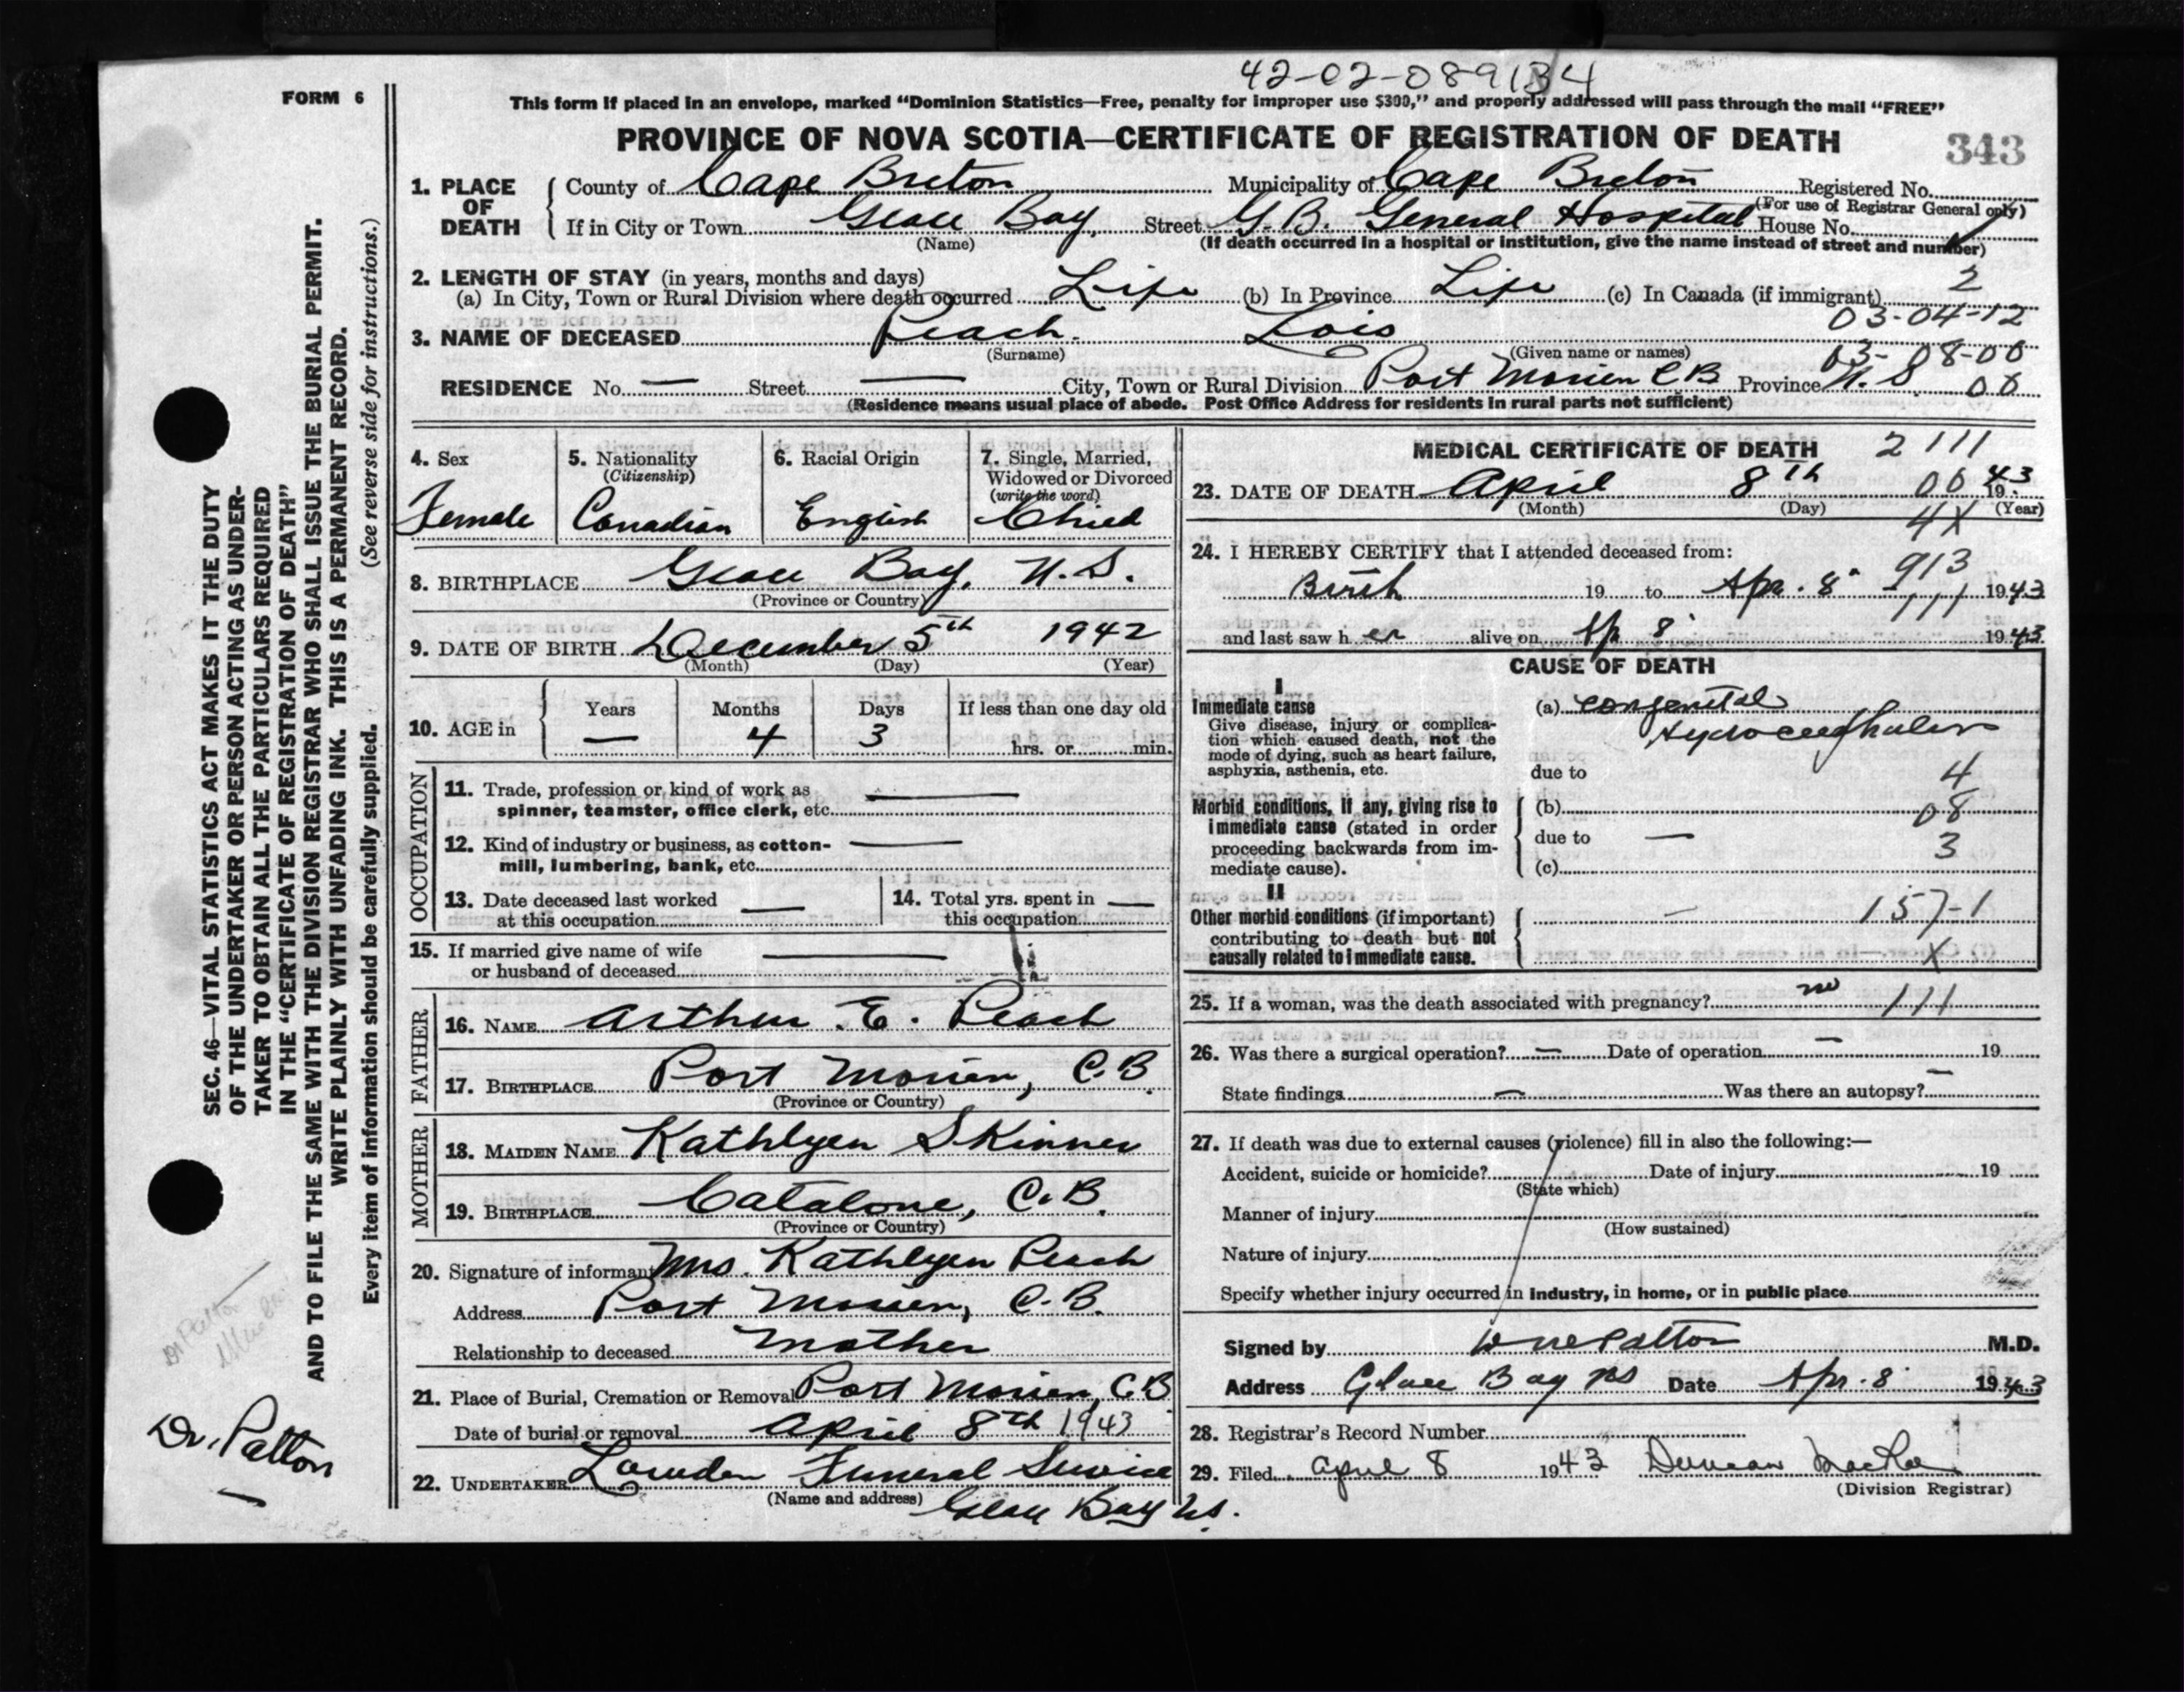 42-02-089134
FORM 6
This form if placed in an envelope, marked “Dominion Statistics—Free, penalty for improper use $300,” and properly addressed will pass through the mail “FREE”
PROVINCE OF NOVA SCOTIA—CERTIFICATE OF REGISTRATION OF DEATH
343
1. PLACE OF DEATH
County of Cape Breton Municipality of Cape Breton Registered No.
(For use of Registrar General only)
If in City or Town Glace Bay, Street G.B. General Hospital House No.
(Name) (If death occurred in a hospital or institution, give the name instead of street and number)
2. LENGTH OF STAY (in years, months and days)
(a) In City, Town or Rural Division where death occurred Life (b) In Province Life (c) In Canada (if immigrant) 2
03-04-12
3. NAME OF DECEASED Peach. Lois
(Surname) (Given name or names)
03-08-00
RESIDENCE No. — Street — City, Town or Rural Division Port Morien C B Province N. S. 0X
(Residence means usual place of abode. Post Office Address for residents in rural parts not sufficient)
4. Sex
Female
5. Nationality
(Citizenship)
Canadian
6. Racial Origin
English
7. Single, Married,
Widowed or Divorced
(write the word)
Child
8. BIRTHPLACE Glace Bay, N. S.
(Province or Country)
9. DATE OF BIRTH December 5th 1942
(Month) (Day) (Year)
10. AGE in
Years Months Days If less than one day old
— 4 3 hrs. or min.
OCCUPATION
11. Trade, profession or kind of work as
spinner, teamster, office clerk, etc. —
12. Kind of industry or business, as cotton-
mill, lumbering, bank, etc. —
13. Date deceased last worked
at this occupation —
14. Total yrs. spent in
this occupation —
15. If married give name of wife
or husband of deceased —
FATHER
16. NAME Arthur E. Peach
17. BIRTHPLACE Port Morien, C.B.
(Province or Country)
MOTHER
18. MAIDEN NAME Kathlyen Skinner
19. BIRTHPLACE Catalone, C.B.
(Province or Country)
20. Signature of informant Mrs. Kathlyen Peach
Address Port Morien, C.B.
Relationship to deceased Mother
21. Place of Burial, Cremation or Removal Port Morien, C.B
Date of burial or removal April 8th 1943
22. UNDERTAKER Lowden Funeral Service
(Name and address) Glace Bay N.S.
MEDICAL CERTIFICATE OF DEATH
2 111
23. DATE OF DEATH April 8th 00 1943
(Month) (Day) (Year)
4X
24. I HEREBY CERTIFY that I attended deceased from:
913
Birth 19 to Apr. 8 1943
111
and last saw h er alive on Ap 8 1943
CAUSE OF DEATH
I
Immediate cause
Give disease, injury or complica-
tion which caused death, not the
mode of dying, such as heart failure,
asphyxia, asthenia, etc.
(a) Congenital
Hydrocephalus
due to 4
Morbid conditions, if any, giving rise to
immediate cause (stated in order
proceeding backwards from im-
mediate cause).
(b) 08
due to — 3
(c)
II
Other morbid conditions (if important)
contributing to death but not
causally related to immediate cause.
— 157-1
X
25. If a woman, was the death associated with pregnancy? no 111
26. Was there a surgical operation? — Date of operation — 19
State findings — Was there an autopsy? —
27. If death was due to external causes (violence) fill in also the following:—
Accident, suicide or homicide? Date of injury 19
(State which)
Manner of injury
(How sustained)
Nature of injury
Specify whether injury occurred in industry, in home, or in public place
Signed by Patton M.D.
Address Glace Bay NS Date Apr. 8 1943
28. Registrar’s Record Number
29. Filed April 8 1943 Duncan MacRae
(Division Registrar)
SEC. 46—VITAL STATISTICS ACT MAKES IT THE DUTY
OF THE UNDERTAKER OR PERSON ACTING AS UNDER-
TAKER TO OBTAIN ALL THE PARTICULARS REQUIRED
IN THE “CERTIFICATE OF REGISTRATION OF DEATH”
AND TO FILE THE SAME WITH THE DIVISION REGISTRAR WHO SHALL ISSUE THE BURIAL PERMIT.
WRITE PLAINLY WITH UNFADING INK. THIS IS A PERMANENT RECORD.
Every item of information should be carefully supplied. (See reverse side for instructions.)
Dr Patton
Dr. Patton